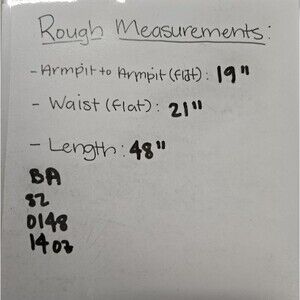 Rough Measurements:
- Armpit to Armpit (flat): 19"
- Waist (flat): 21"
- Length: 48"
BA
82
0148
14oz